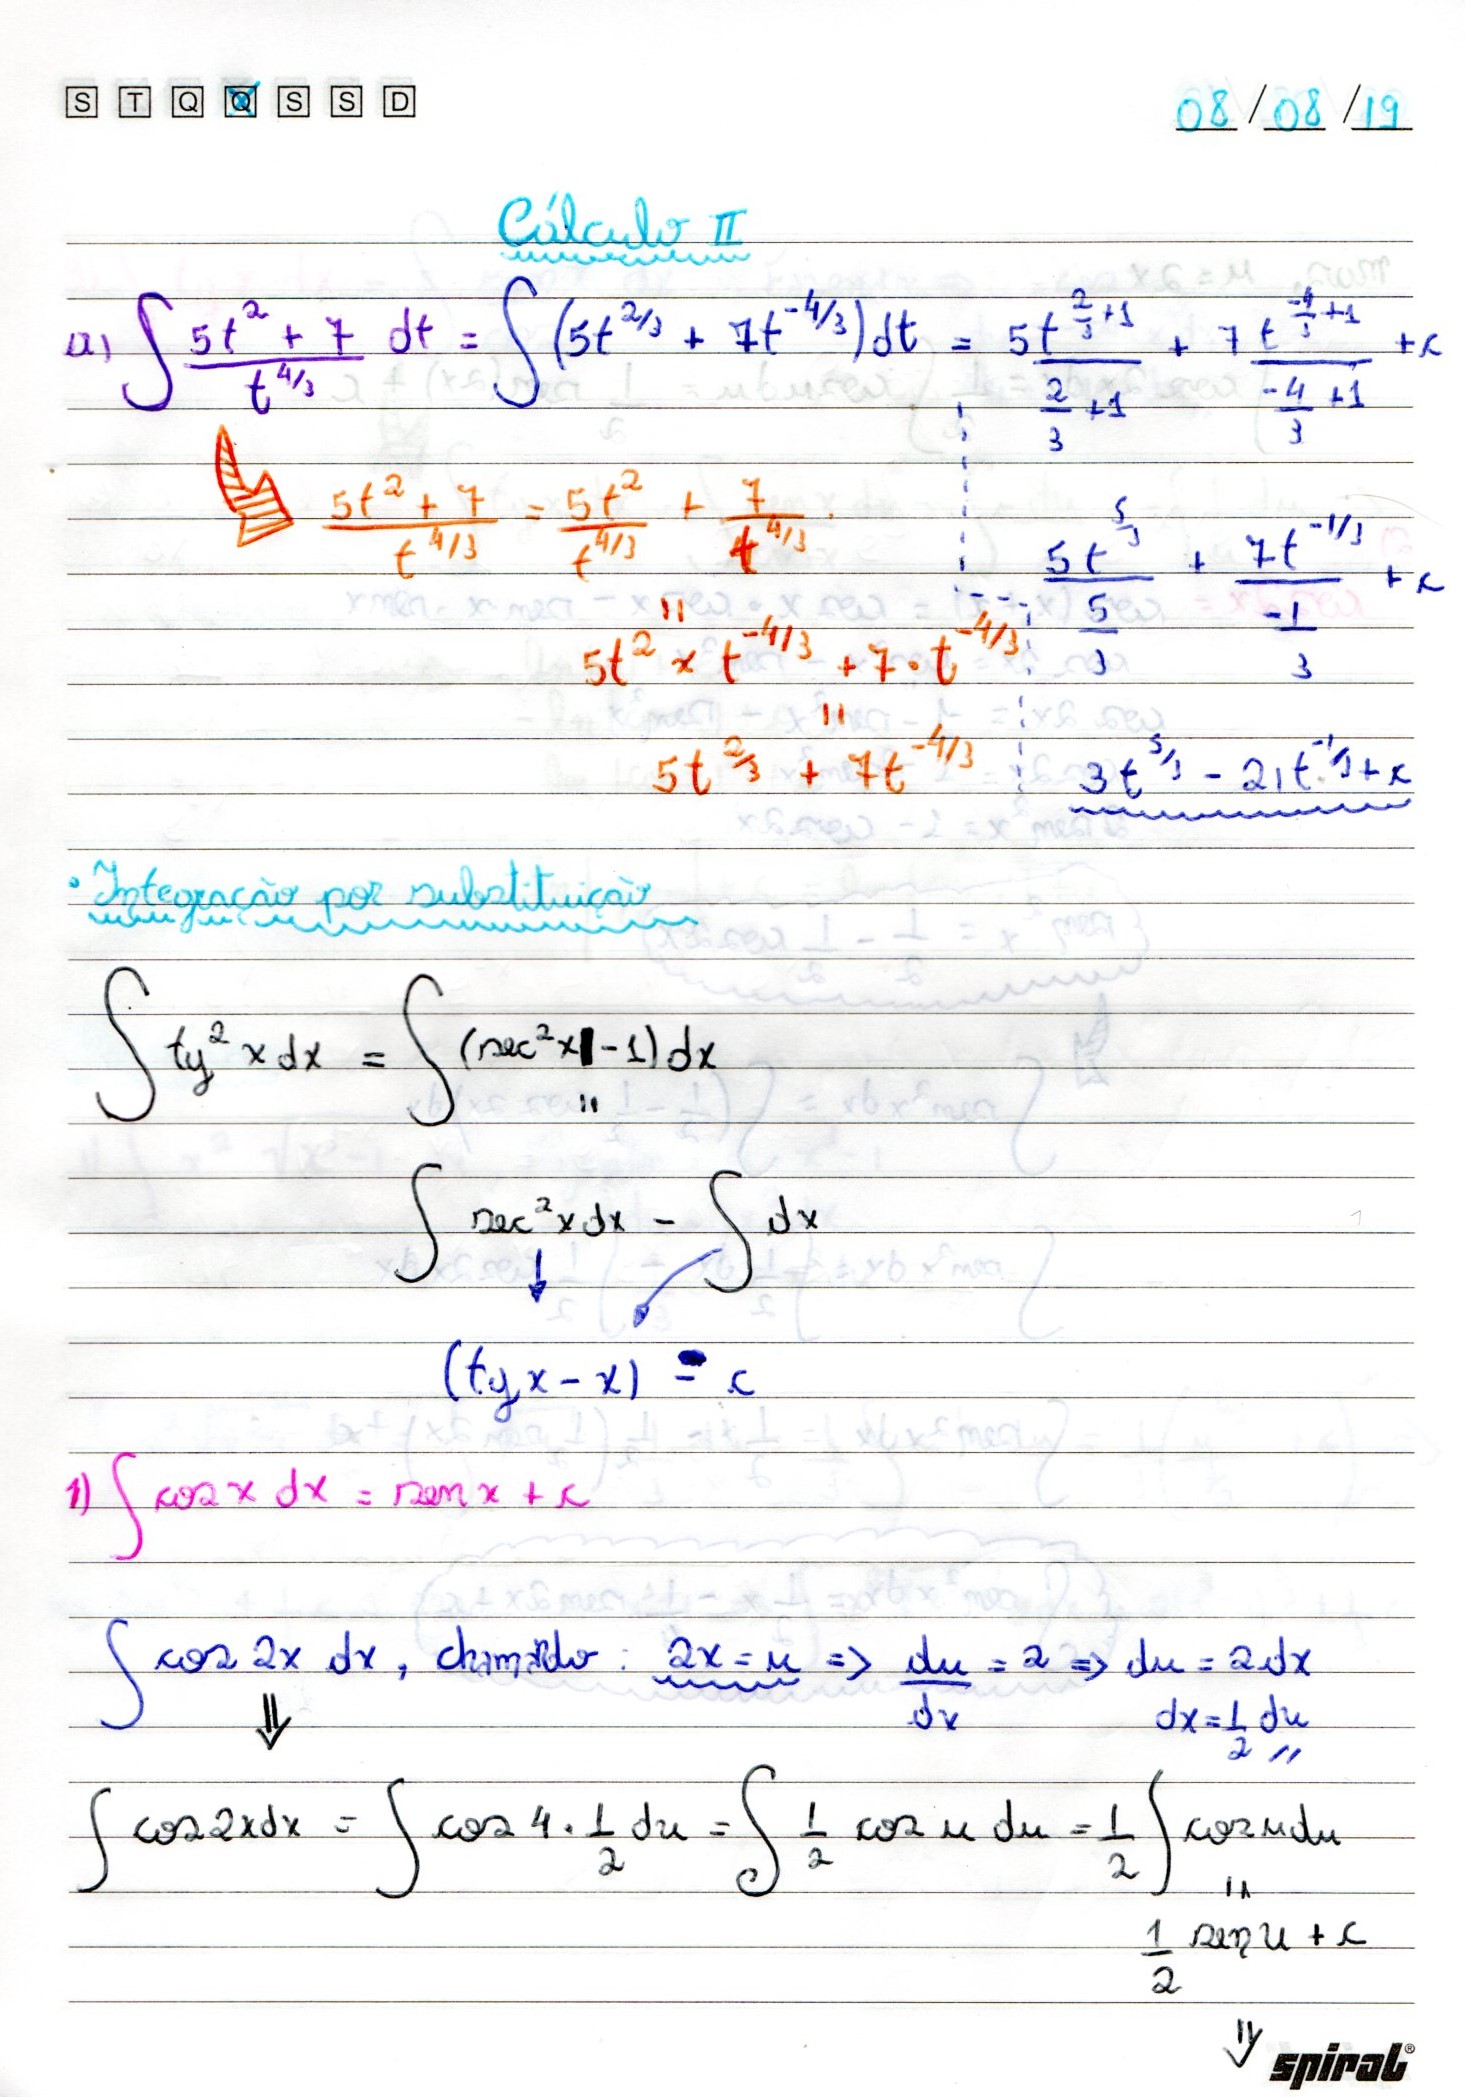 S T Q Q S S D 08/08/19
Cálculo II
a) ∫ (5t² + 7)/t^(4/3) dt = ∫ (5t^(2/3) + 7t^(-4/3)) dt = 5t^(2/3 + 1)/(2/3 + 1) + 7t^(-4/3 + 1)/(-4/3 + 1) + c
(5t² + 7)/t^(4/3) = 5t²/t^(4/3) + 7/t^(4/3).
5t^(5/3)/(5/3) + 7t^(-1/3)/(-1/3) + c
=
5t² × t^(-4/3) + 7 · t^(-4/3)
=
5t^(2/3) + 7t^(-4/3)
3t^(5/3) - 21t^(-1/3) + c
• Integração por substituição
∫ tg² x dx = ∫ (sec² x - 1) dx
=
∫ sec² x dx - ∫ dx
(tg x - x) - c
1) ∫ cos x dx = sen x + c
∫ cos 2x dx, chamando: 2x = u => du/dx = 2 => du = 2dx
dx = 1/2 du //
∫ cos 2x dx = ∫ cos 4 · 1/2 du = ∫ 1/2 cos u du = 1/2 ∫ cos u du
=
1/2 sen u + c
spiral®